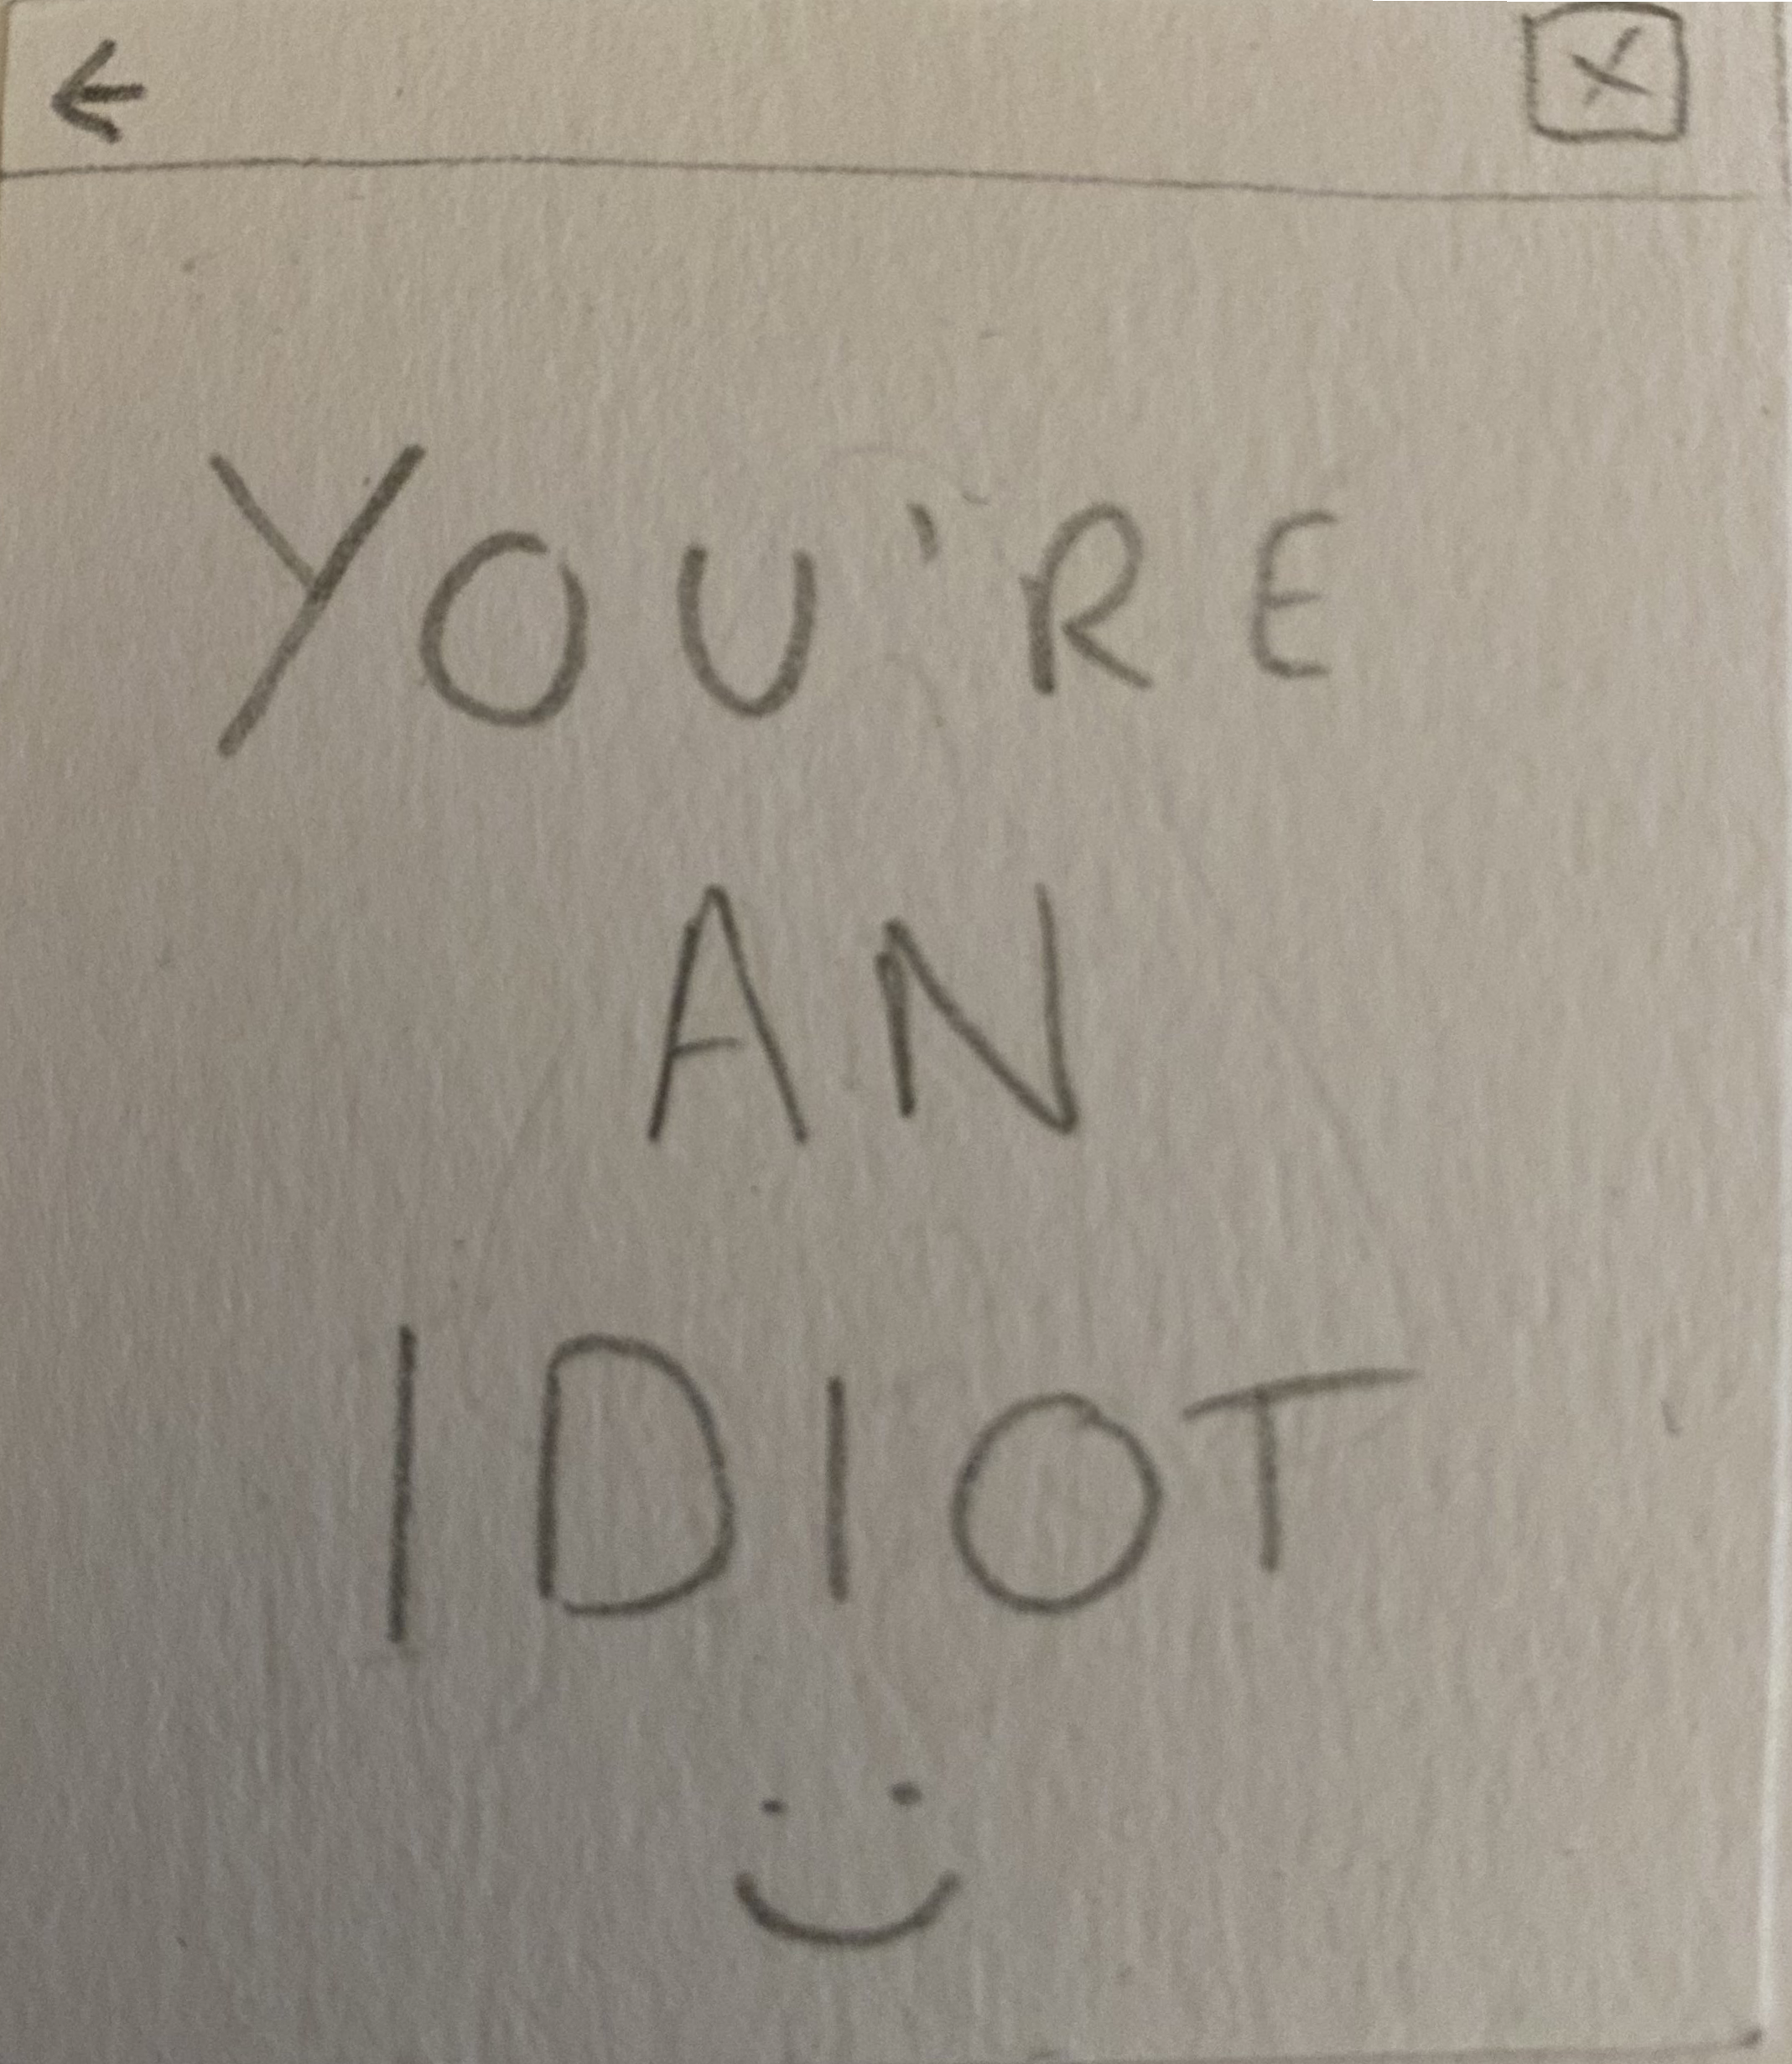 YOU'RE
AN
IDIOT